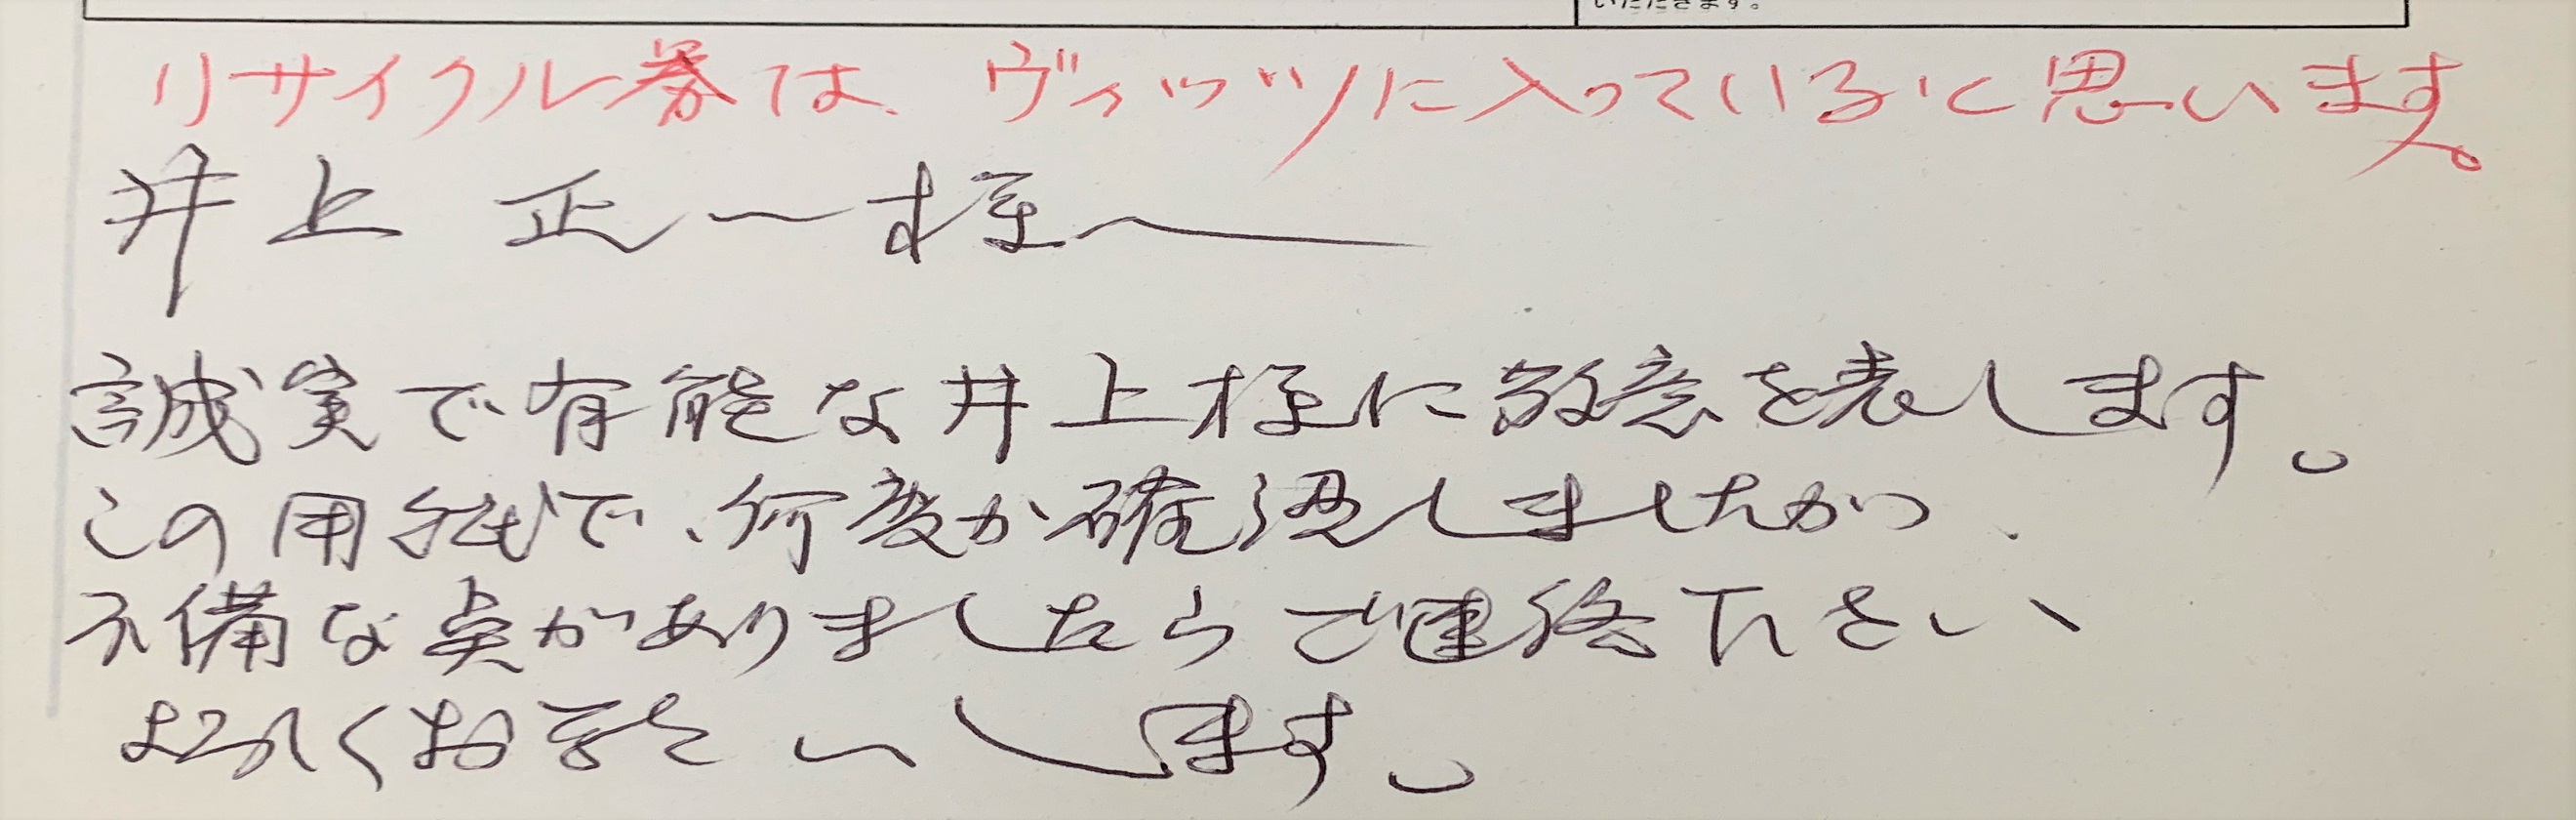 いただきます。
リサイクル券は、ヴィッツに入っていると思います。
井上 正一様
誠実で有能な井上様に敬意を表します。
この用紙で、何度か確認しましたが、
不備な点がありましたらご連絡下さい
よろしくお願いします。